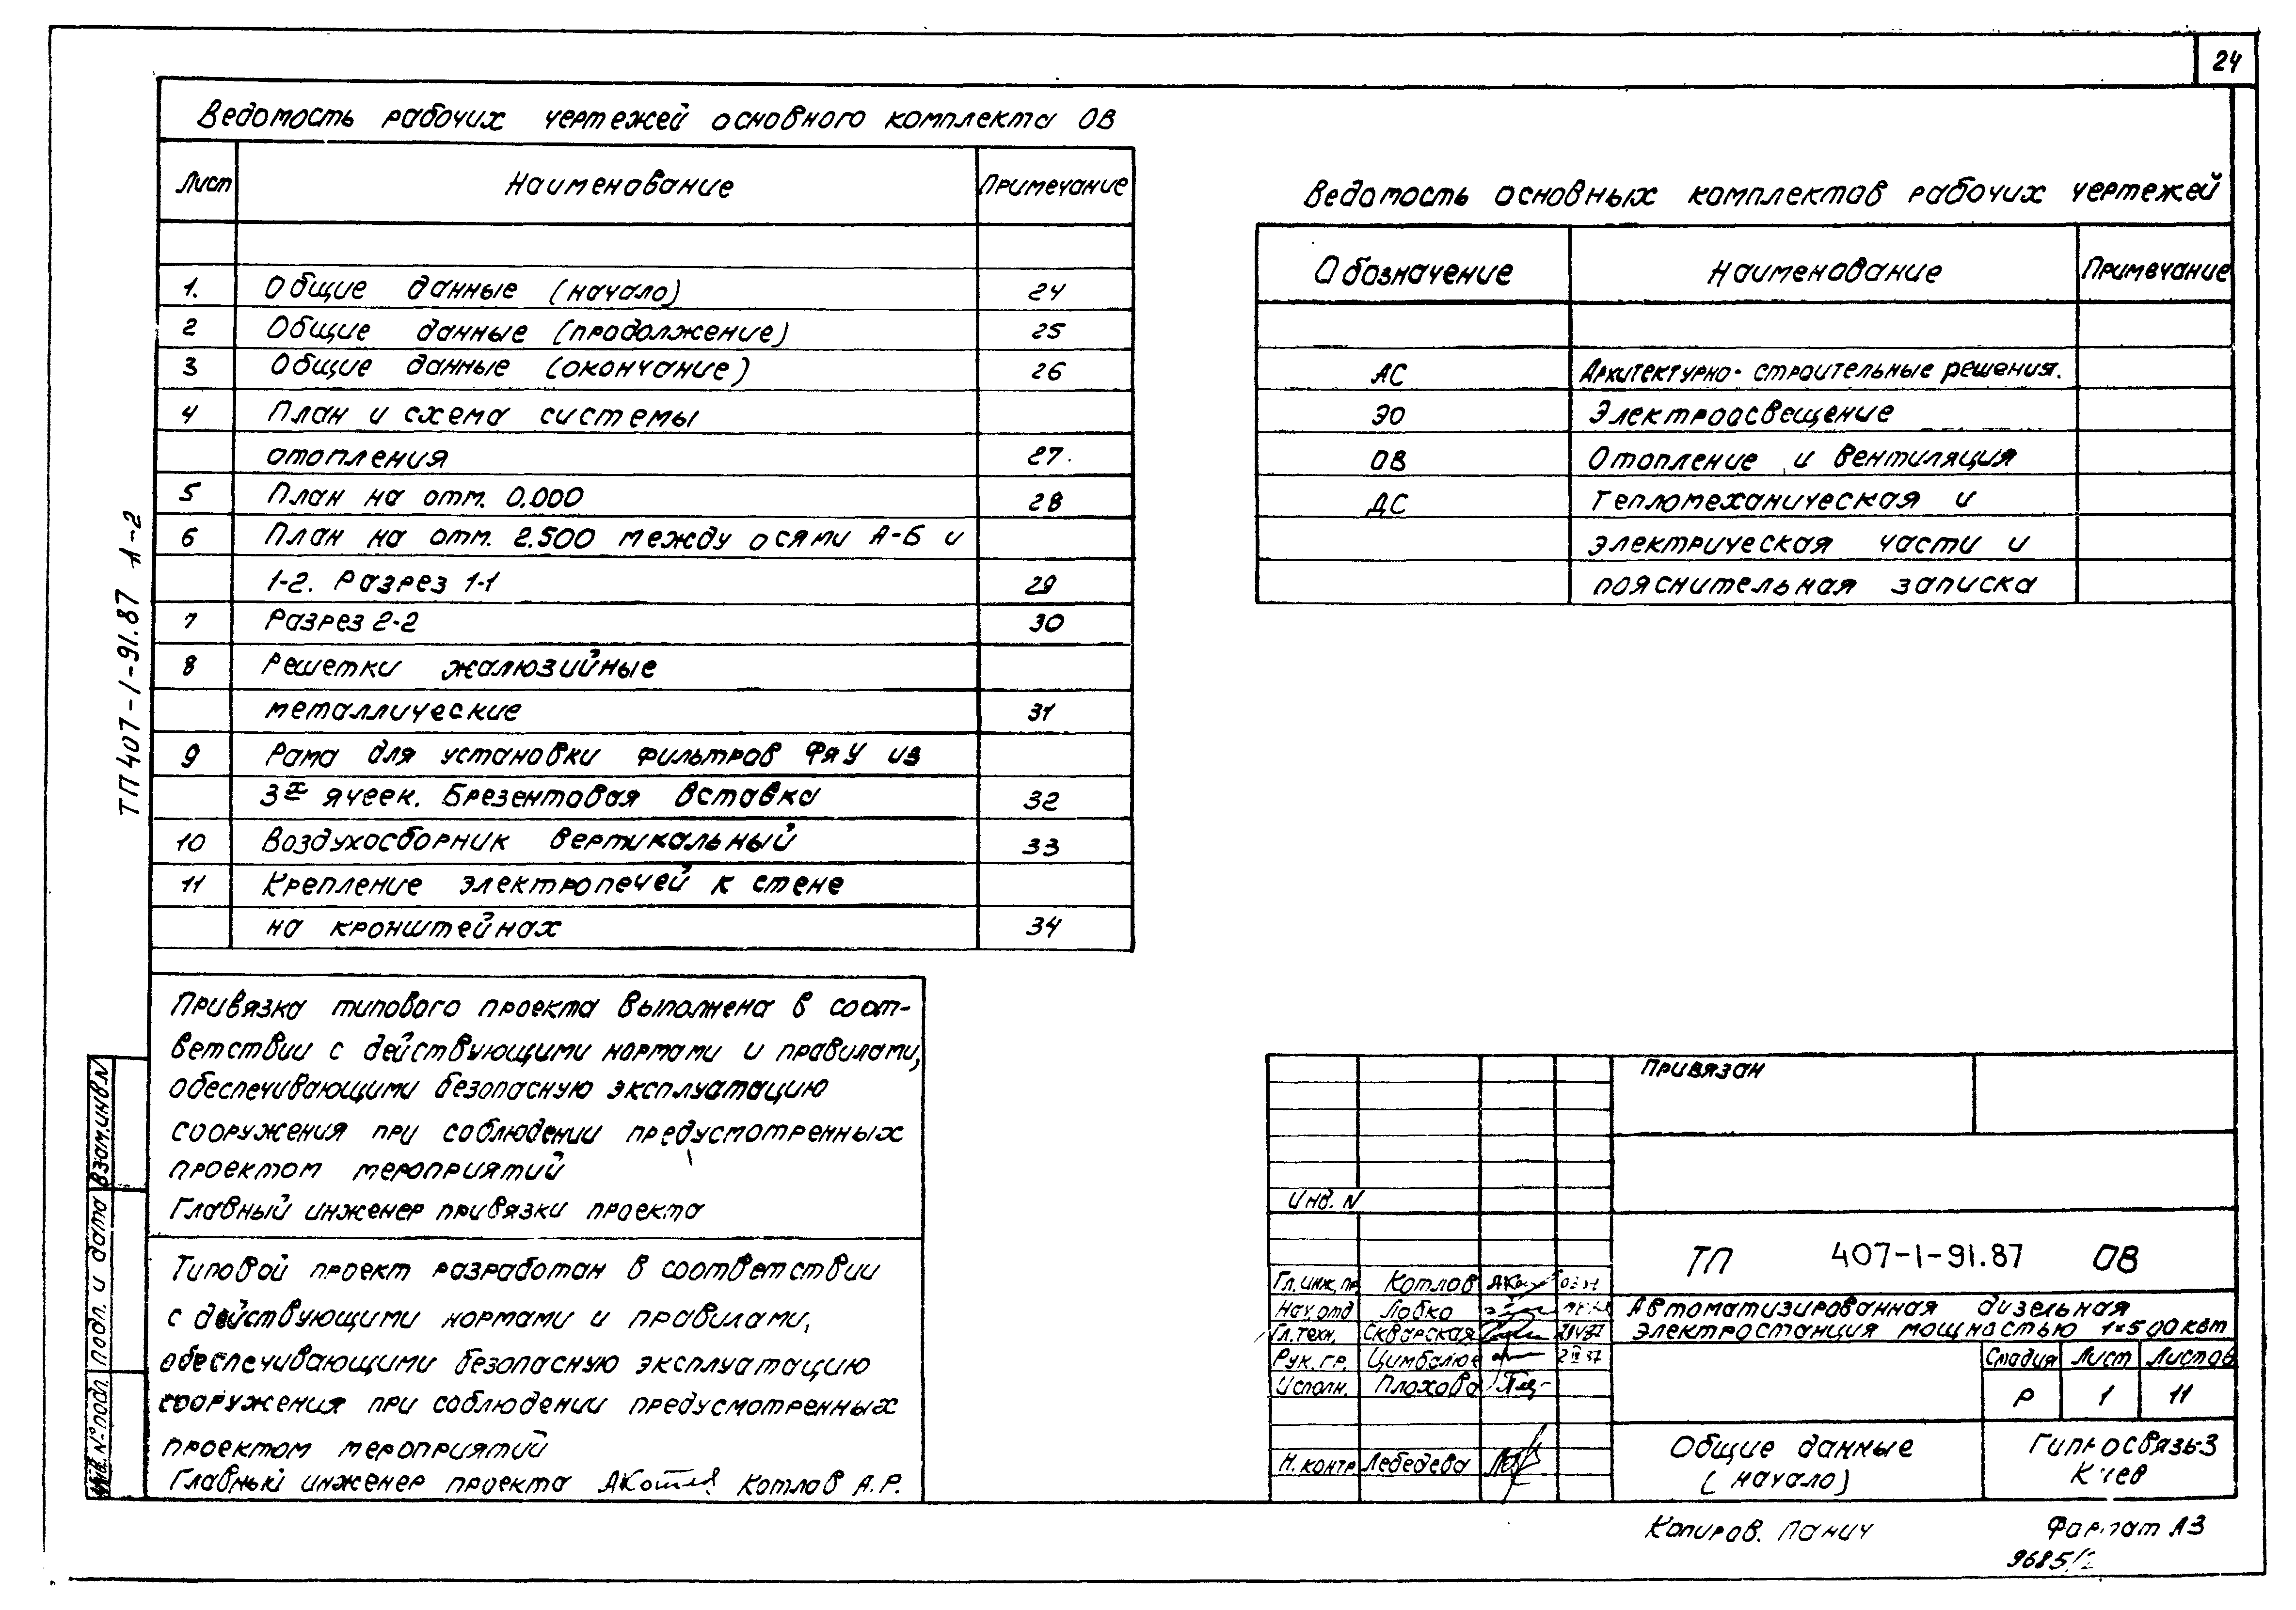 24
Ведомость рабочих чертежей основного комплекта ОВ
Лист Наименование Примечание
1. Общие данные (начало) 24
2 Общие данные (продолжение) 25
3 Общие данные (окончание) 26
4 План и схема системы
отопления 27.
5 План на отм. 0.000 28
6 План на отм. 2.500 между осями А-Б и
1-2. Разрез 1-1 29
7 Разрез 2-2 30
8 Решетки жалюзийные
металлические 31
9 Рама для установки фильтров ФяУ из
3х ячеек. Брезентовая вставка 32
10 Воздухосборник вертикальный 33
11 Крепление электропечей к стене
на кронштейнах 34
Ведомость основных комплектов рабочих чертежей
Обозначение Наименование Примечание
АС Архитектурно-строительные решения.
ЭО Электроосвещение
ОВ Отопление и вентиляция
ДС Тепломеханическая и
электрическая части и
пояснительная записка
ТП 407-1-91.87 А-2
Привязка типового проекта выполнена в соот-
ветствии с действующими нормами и правилами,
обеспечивающими безопасную эксплуатацию
сооружения при соблюдении предусмотренных
проектом мероприятий
Главный инженер привязки проекта
Типовой проект разработан в соответствии
с действующими нормами и правилами,
обеспечивающими безопасную эксплуатацию
сооружения при соблюдении предусмотренных
проектом мероприятий
Главный инженер проекта АКотлов Котлов А.Р.
Взам.инв N
Подп. и дата
Инв. N° подл.
Привязан
Инв. N
ТП 407-1-91.87 ОВ
Гл.инж.пр. Котлов
Нач.отд Лобко
Гл.техн. Скварская
Рук.гр. Цимбалюк
Исполн. Плохова
Н.контр Лебедева
Автоматизированная дизельная
электростанция мощностью 1×500 квт
Стадия Лист Листов
Р 1 11
Общие данные
(начало)
Гипросвязь-3
Киев
Копиров. Панич
Формат А3
9685/2